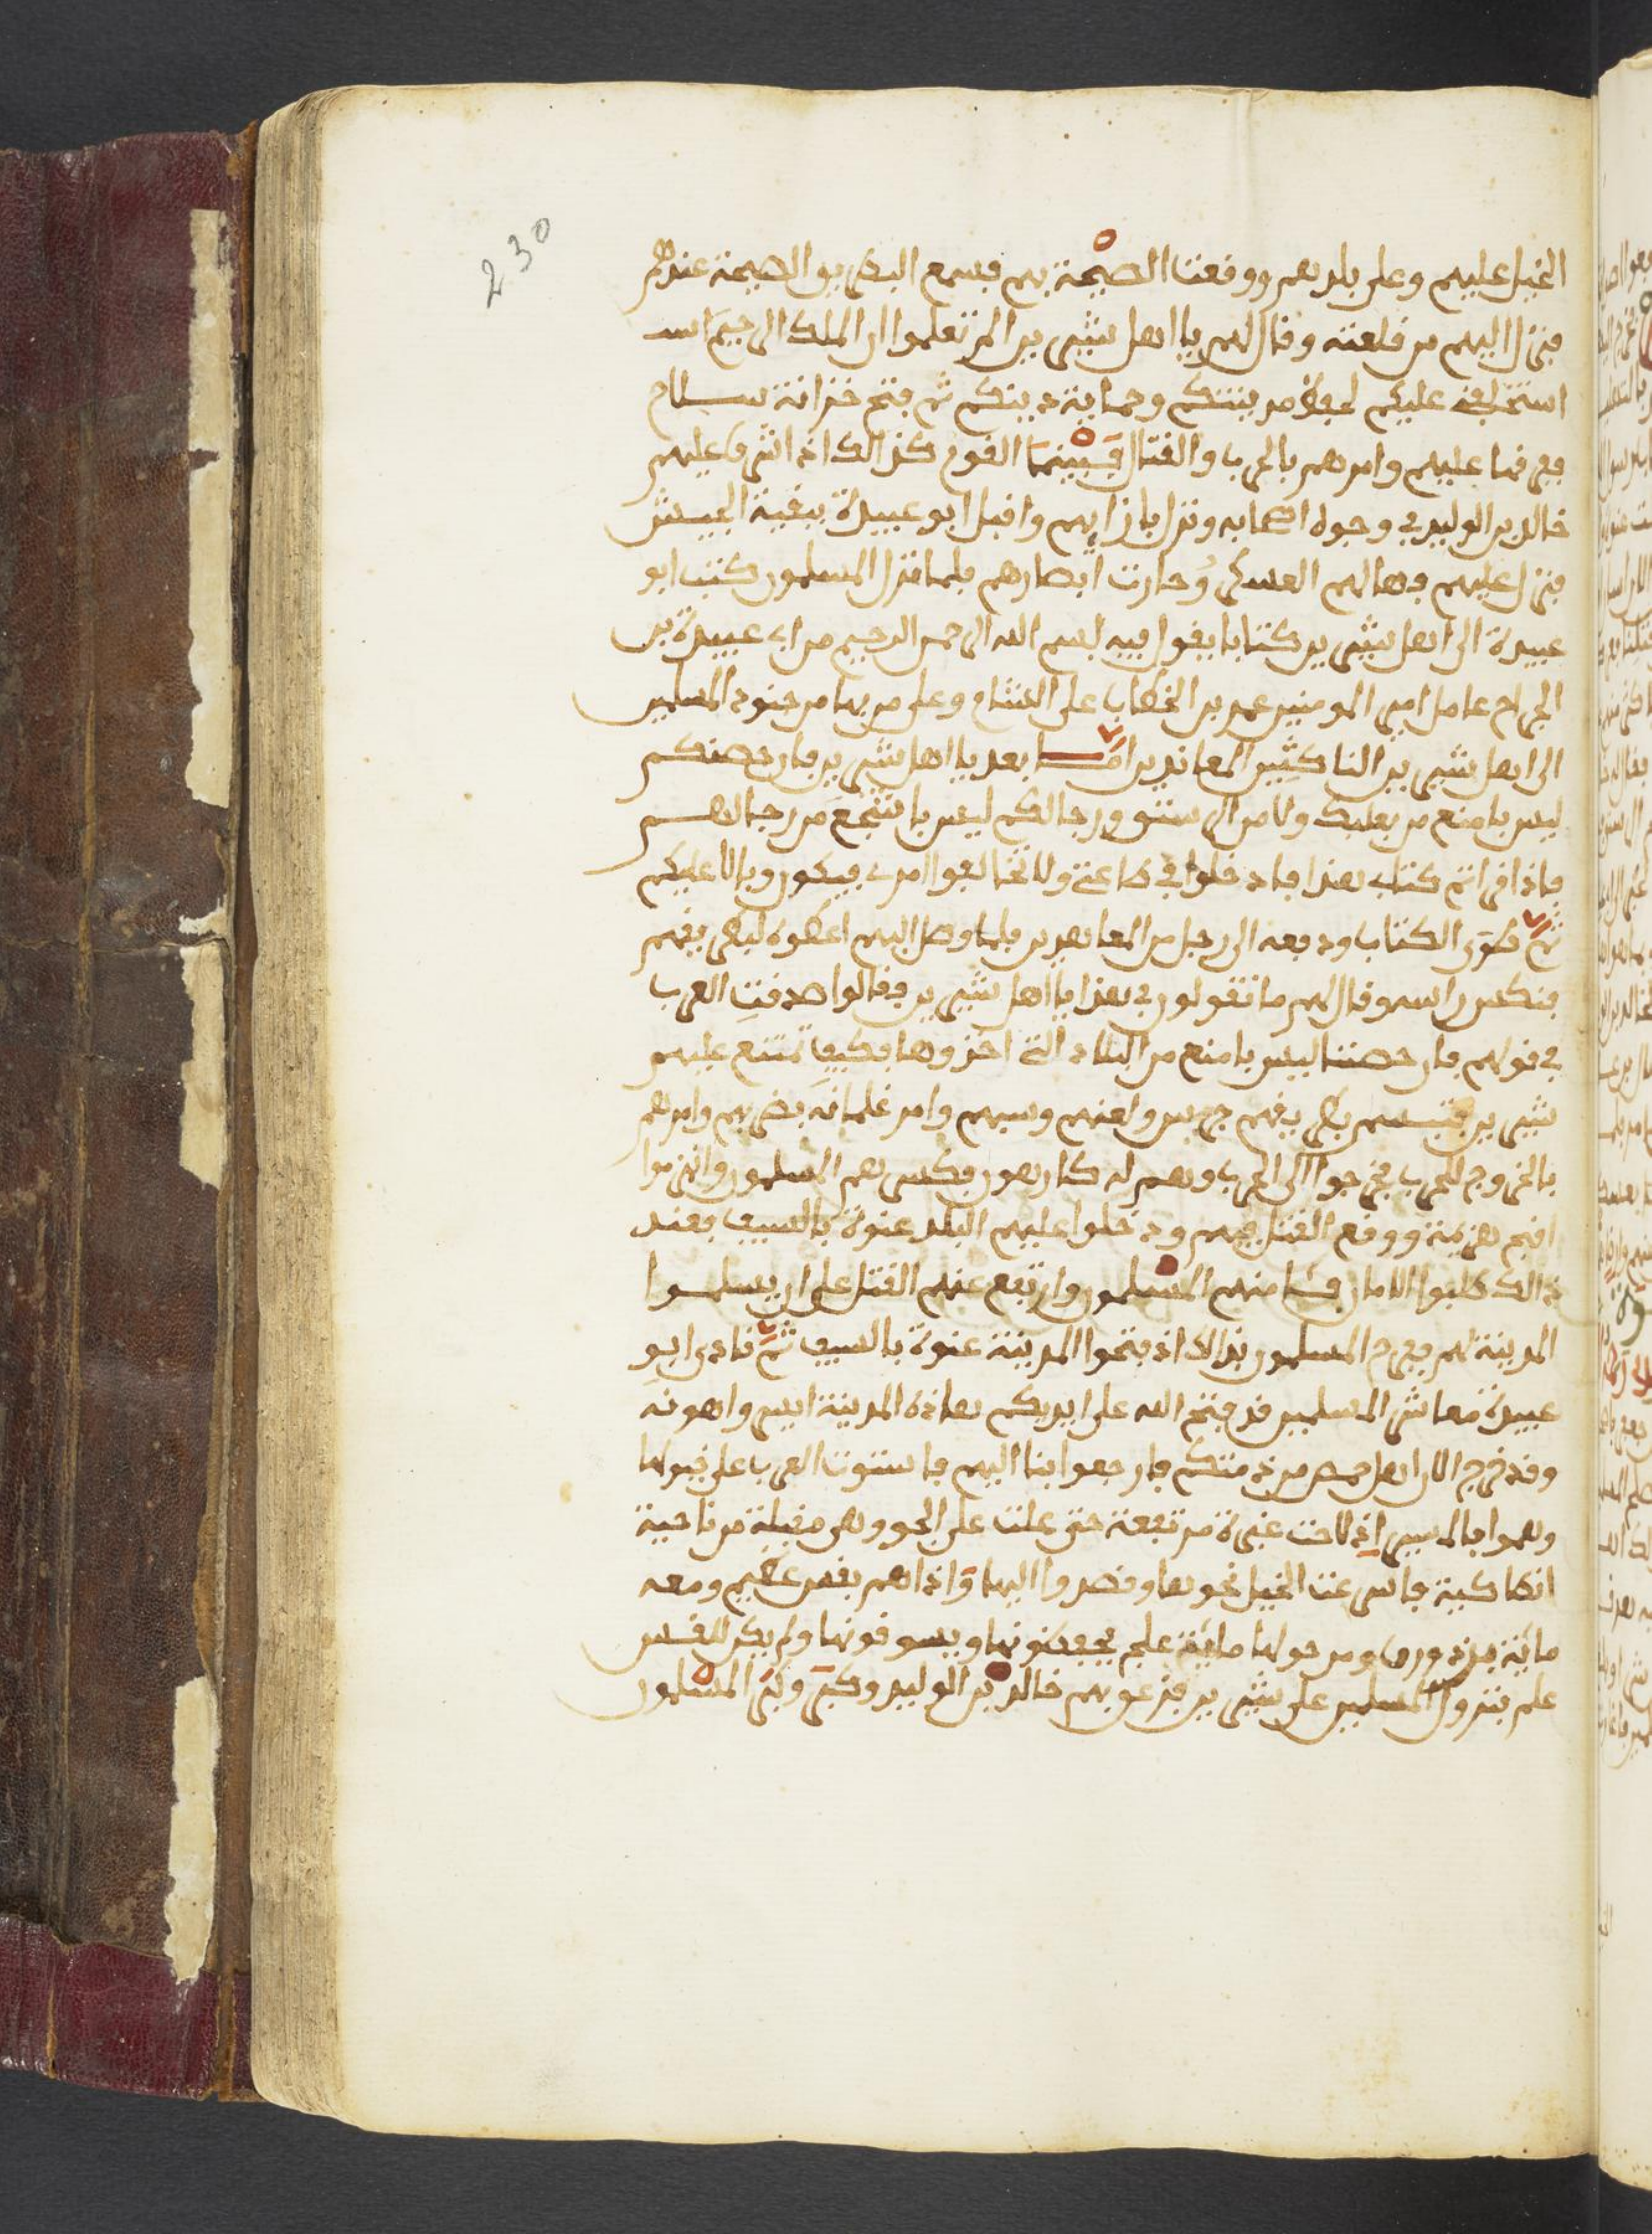 230
الخيل عليهم وعلى بلدهم ووقعت الصيحة بهم فسمع البطريق الصيحة عندهم
فنزل اليهم من قلعته وقال لهم يا اهل شيزر الم تعلموا ان الملك الرحيم
استخلفني عليكم لحفظ مدينتكم وحماية دينكم ثم فتح خزانة سلاح
ففرقها عليهم وامرهم بالحرب والقتال فبينما القوم كذالك اذ اشرف عليهم
خالد بن الوليد في وجوه اصحابه ونزل بازايهم واقبل ابو عبيدة ببقية الجيش
فنزل عليهم فهالهم العسكر وحارت ابصارهم فلما نزل المسلمون كتب ابو
عبيدة الى اهل شيزر كتابا يقول فيه بسم الله الرحمن الرحيم من ابي عبيدة بن
الجراح عامل امير المومنين عمر بن الخطاب على الشام وعلى من بها من جنود المسلمين
الى اهل شيزر الناكثين المعاندين اما بعد يا اهل شيزر فان حصنكم
ليس بامنع من بعلبك ولا من الرستن ورجالكم ليس باشجع من رجالهم
فاذا قراتم كتابي هذا فادخلوا في طاعتي ولا تخالفوا امري فيكون وبالا عليكم
ثم طوى الكتاب ودفعه الى رجل من المعاهدين فلما وصل اليهم اعطوه لبطريقهم
فنكس راسه وقال لهم ما تقولون في هذا يا اهل شيزر فقالوا صدقت العرب
في قولهم فان حصننا ليس بامنع من البلاد التي اخذوها فكيف تمتنع عليهم
شيزر بطريقهم ولعنهم وسبهم وامر غلمانه بضربهم وامرهم
بالخروج للحرب فخرجوا الى الحرب وهم له كارهون فكسرهم المسلمون وانهزموا
اقبح هزيمة ووقع القتل فيهم ودخلوا عليهم البلد عنوة بالسيف فعند
ذالك طلبوا الامان منهم المسلمون وارتفع عنهم القتل على ان يسلموا
المدينة لهم ففرح المسلمون بذالك اذ فتحوا المدينة عنوة بالسيف ثم نادى ابو
عبيدة معاشر المسلمين قد فتح الله على ايديكم هاذه المدينة ايسر واهونه
وقد خرج الان اهل حمص من ذمتكم فارجعوا بنا اليهم فاستوت العرب على خيولها
وهموا بالمسير اذ لاحت غبرة مرتفعة حتى علت على الجو وهي مقبلة من ناحية
انطاكية فاسرعت الخيل نحوها وقصدوا اليها واذا هم بقس عظيم ومعه
ماية برذون ومن حولها ماية علج يحفظونها ويسوقونها ولم يكن للقس
علم بنزول المسلمين على شيزر خالد بن الوليد وكبر وكبر المسلمون